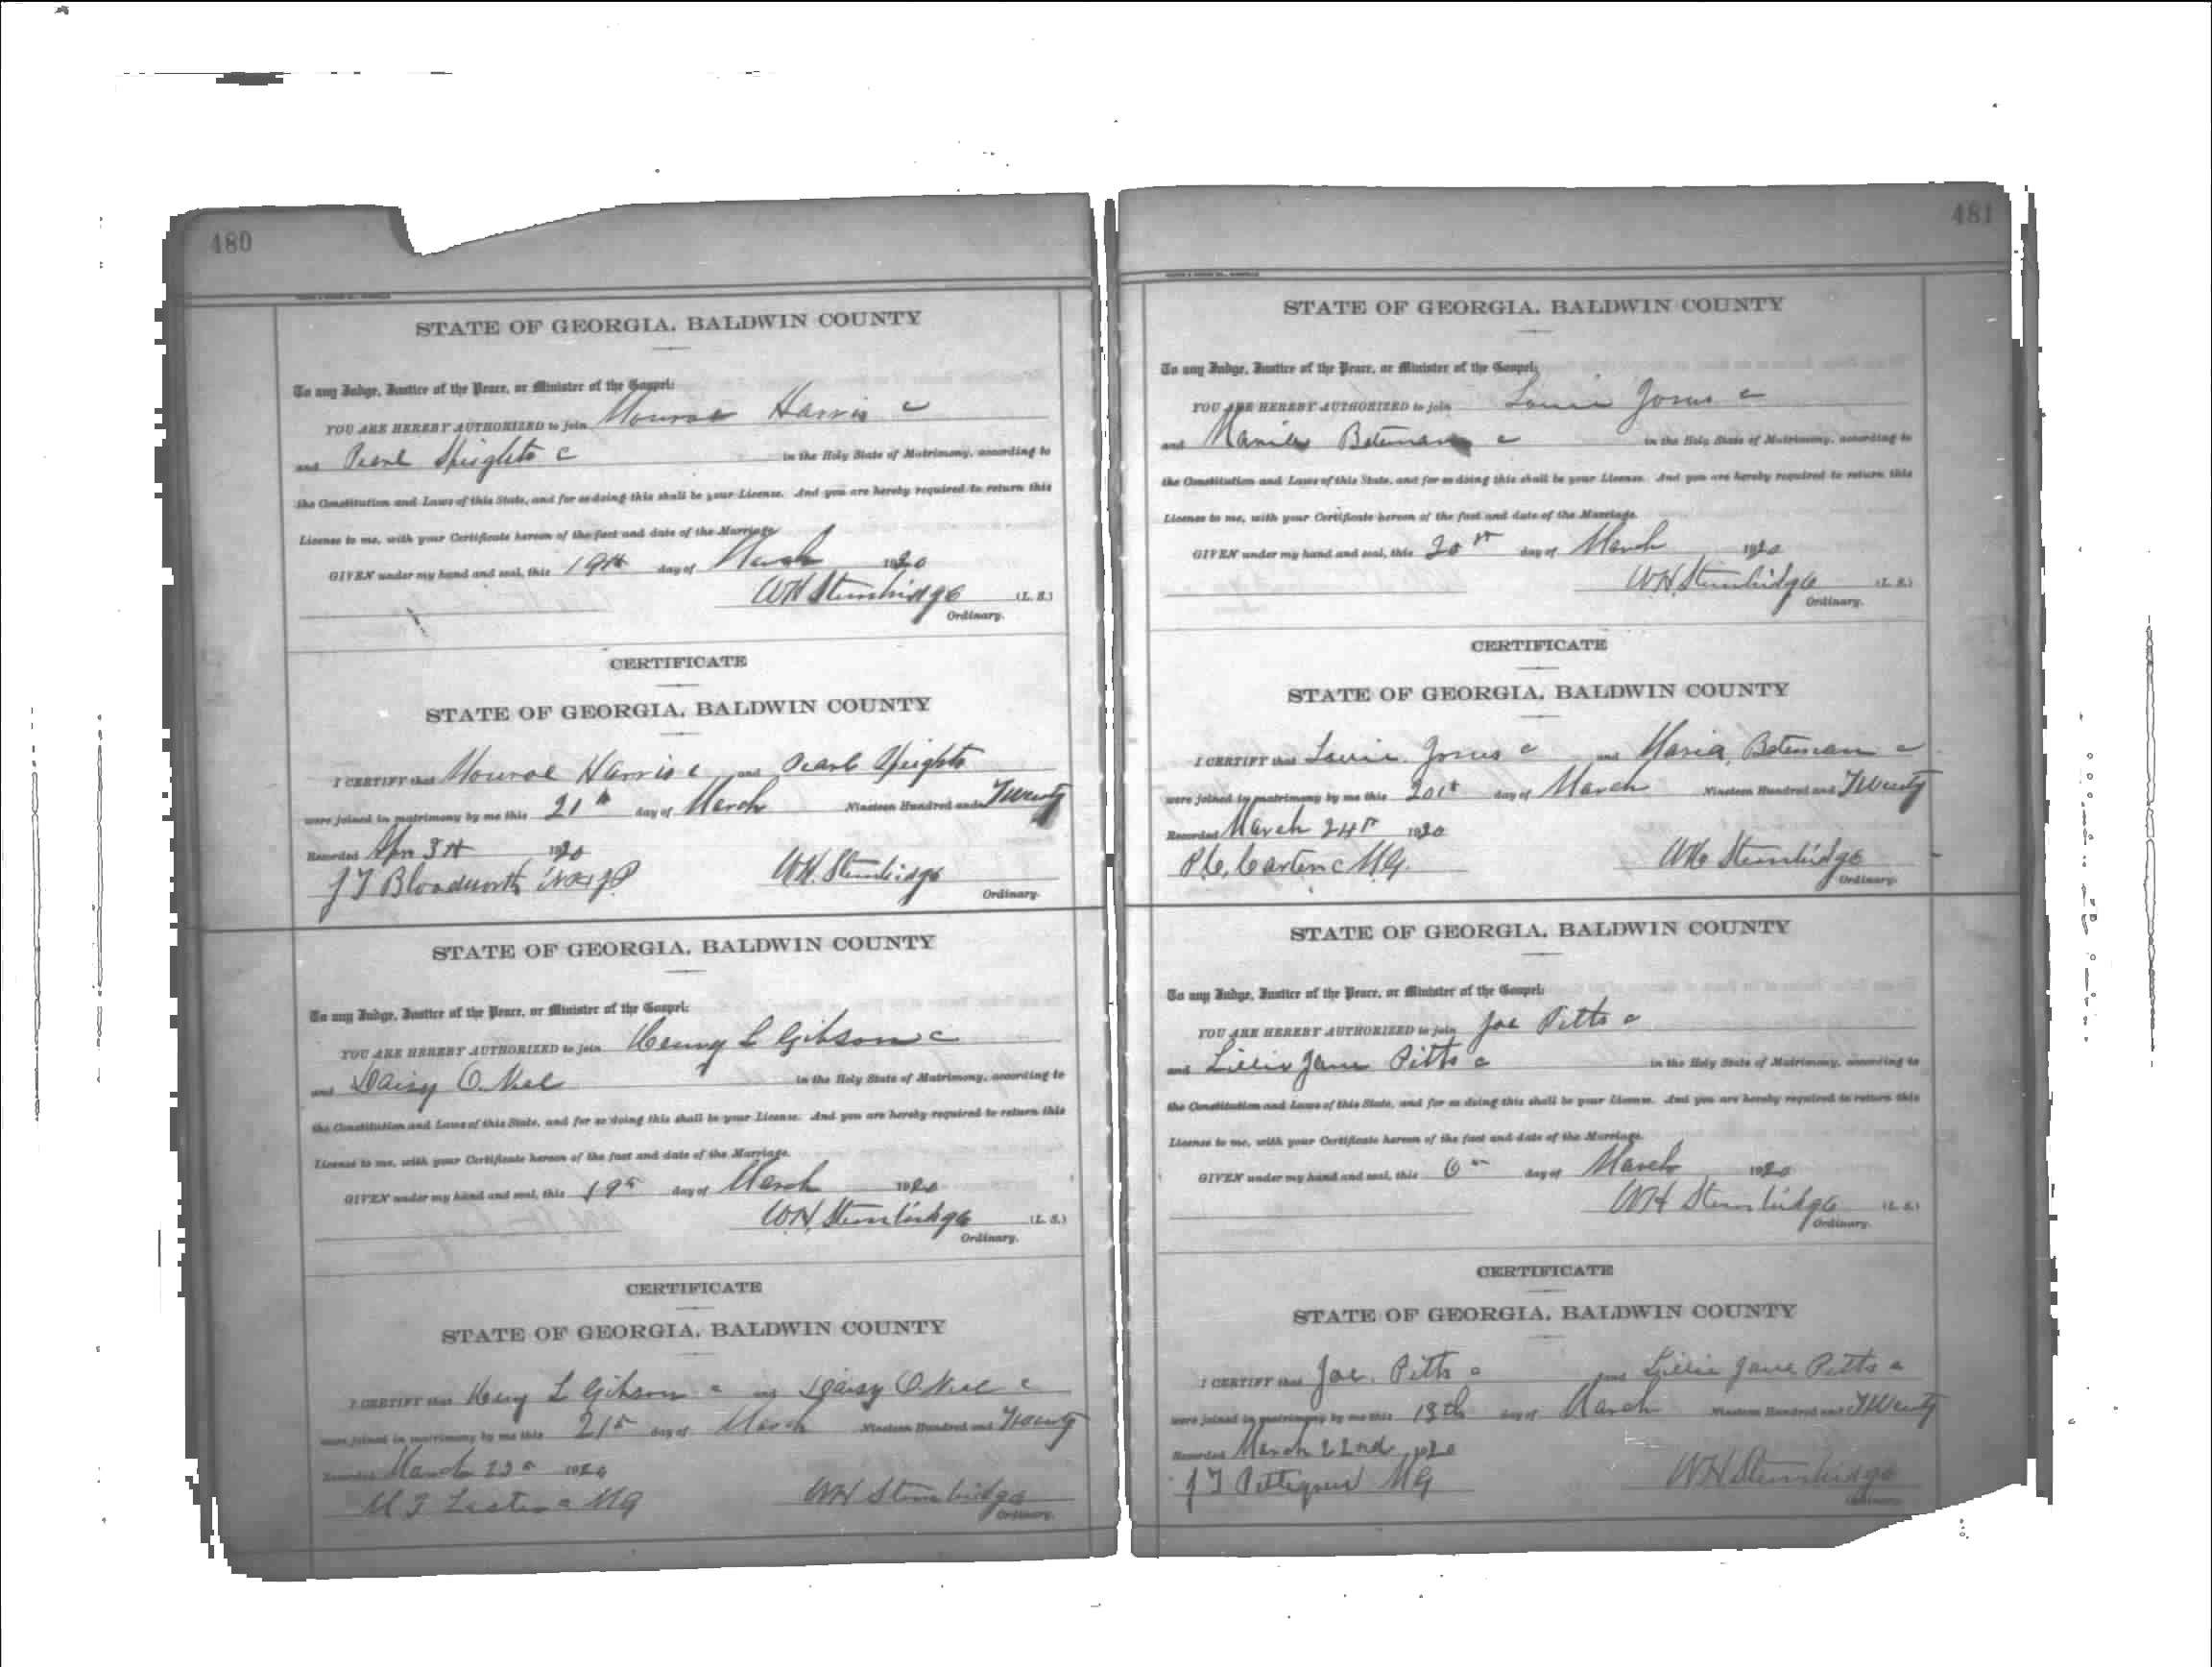 480
STATE OF GEORGIA, BALDWIN COUNTY
To any Judge, Justice of the Peace, or Minister of the Gospel:
YOU ARE HEREBY AUTHORIZED to join Monroe Harris c
and Pearl Speights c in the Holy State of Matrimony, according to
the Constitution and Laws of this State, and for so doing this shall be your License. And you are hereby required to return this
License to me, with your Certificate hereon of the fact and date of the Marriage.
GIVEN under my hand and seal, this 19th day of March 1920
WH Stembridge (L. S.)
Ordinary.
CERTIFICATE
STATE OF GEORGIA, BALDWIN COUNTY
I CERTIFY that Monroe Harris c and Pearl Speights
were joined in matrimony by me this 21st day of March Nineteen Hundred and Twenty
Recorded Apr 3rd 1920
J T Bloodworth WH Stembridge
Ordinary.
STATE OF GEORGIA, BALDWIN COUNTY
To any Judge, Justice of the Peace, or Minister of the Gospel:
YOU ARE HEREBY AUTHORIZED to join Henry L Gibson c
and Daisy O.Neal in the Holy State of Matrimony, according to
the Constitution and Laws of this State, and for so doing this shall be your License. And you are hereby required to return this
License to me, with your Certificate hereon of the fact and date of the Marriage.
GIVEN under my hand and seal, this 19th day of March 1920
W.H. Stembridge (L. S.)
Ordinary.
CERTIFICATE
STATE OF GEORGIA, BALDWIN COUNTY
I CERTIFY that Henry L Gibson c and Daisy O.Neal c
were joined in matrimony by me this 21st day of March Nineteen Hundred and Twenty
Recorded March 1920
M F Lester c MG WH Stembridge
Ordinary.
481
STATE OF GEORGIA, BALDWIN COUNTY
To any Judge, Justice of the Peace, or Minister of the Gospel:
YOU ARE HEREBY AUTHORIZED to join Louie Jones c
and Bateman c in the Holy State of Matrimony, according to
the Constitution and Laws of this State, and for so doing this shall be your License. And you are hereby required to return this
License to me, with your Certificate hereon of the fact and date of the Marriage.
GIVEN under my hand and seal, this 20th day of March 1920
W.H. Stembridge (L. S.)
Ordinary.
CERTIFICATE
STATE OF GEORGIA, BALDWIN COUNTY
I CERTIFY that Louie Jones c and Maria Bateman c
were joined in matrimony by me this 20th day of March Nineteen Hundred and Twenty
Recorded March 24th 1920
Carter c M.G. WH Stembridge
Ordinary.
STATE OF GEORGIA, BALDWIN COUNTY
To any Judge, Justice of the Peace, or Minister of the Gospel:
YOU ARE HEREBY AUTHORIZED to join Joe Pitts c
and Lillie Jane Pitts c in the Holy State of Matrimony, according to
the Constitution and Laws of this State, and for so doing this shall be your License. And you are hereby required to return this
License to me, with your Certificate hereon of the fact and date of the Marriage.
GIVEN under my hand and seal, this 6th day of March 1920
WH Stembridge (L. S.)
Ordinary.
CERTIFICATE
STATE OF GEORGIA, BALDWIN COUNTY
I CERTIFY that Joe. Pitts c and Lillie Jane Pitts c
were joined in matrimony by me this 13th day of March Nineteen Hundred and Twenty
Recorded March 22nd 1920
J T Pettigrew MG WH Stembridge
Ordinary.